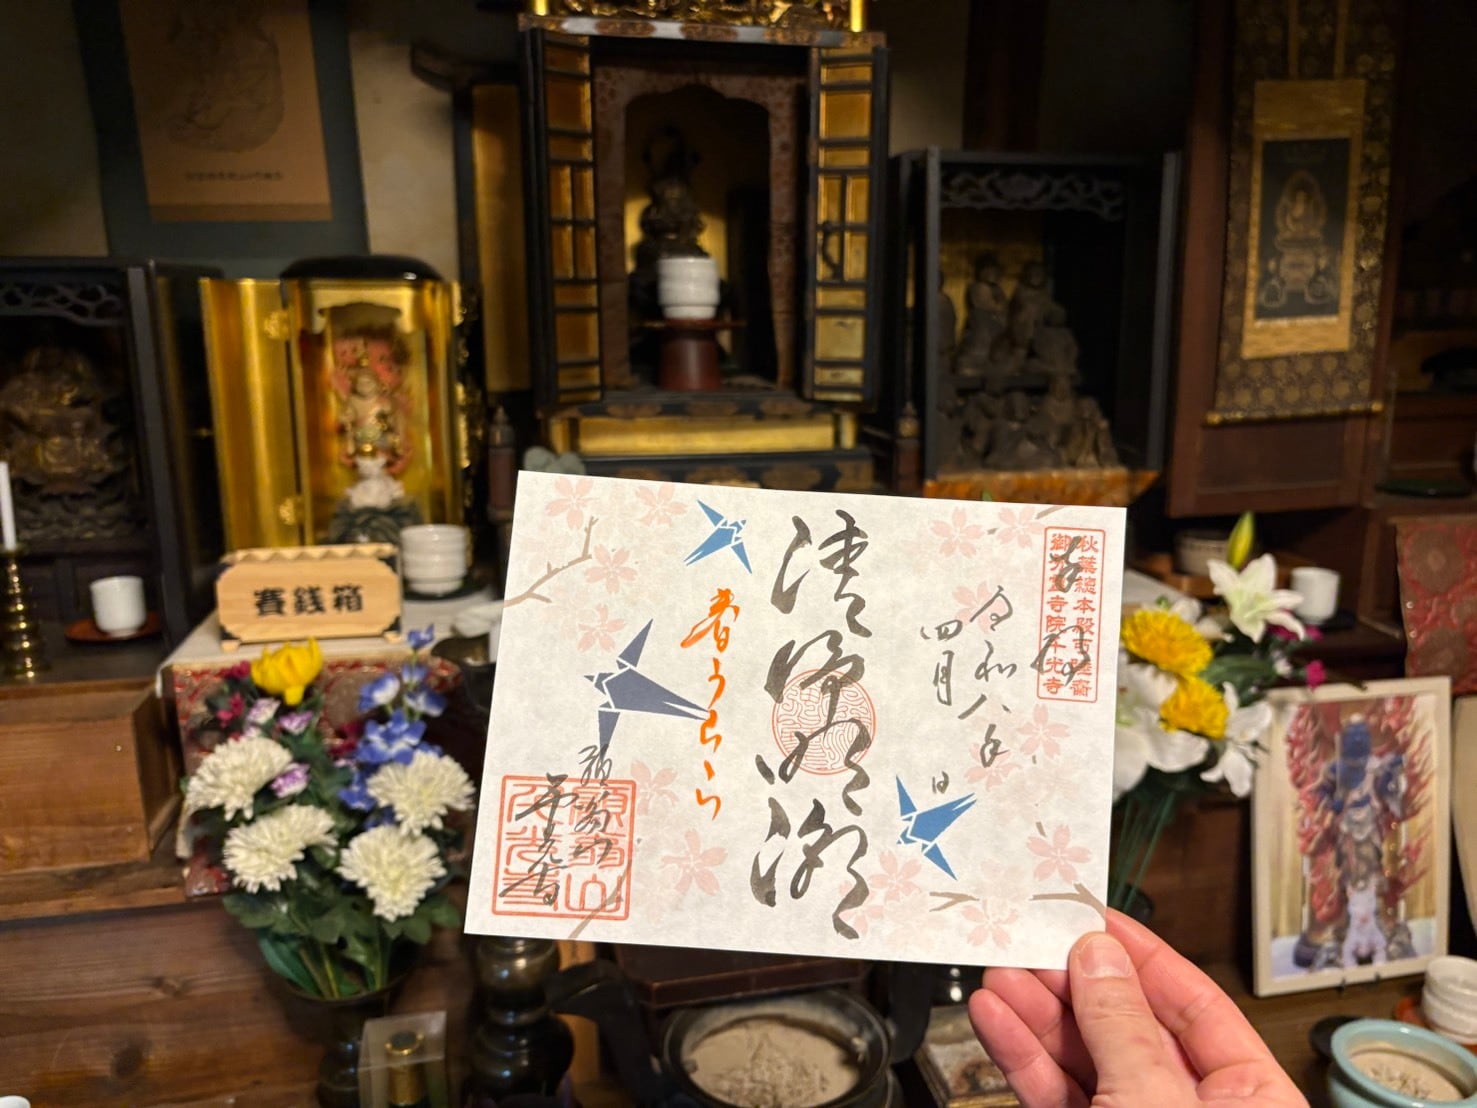 賽銭箱
奉拝
秋葉總本殿可睡齋
御分霊寺院千光寺
令和八年
四月 日
清浄明潔
春うらら
千光寺